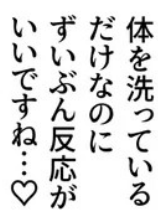 体を洗っている
だけなのに
ずいぶん反応が
いいですね…♡